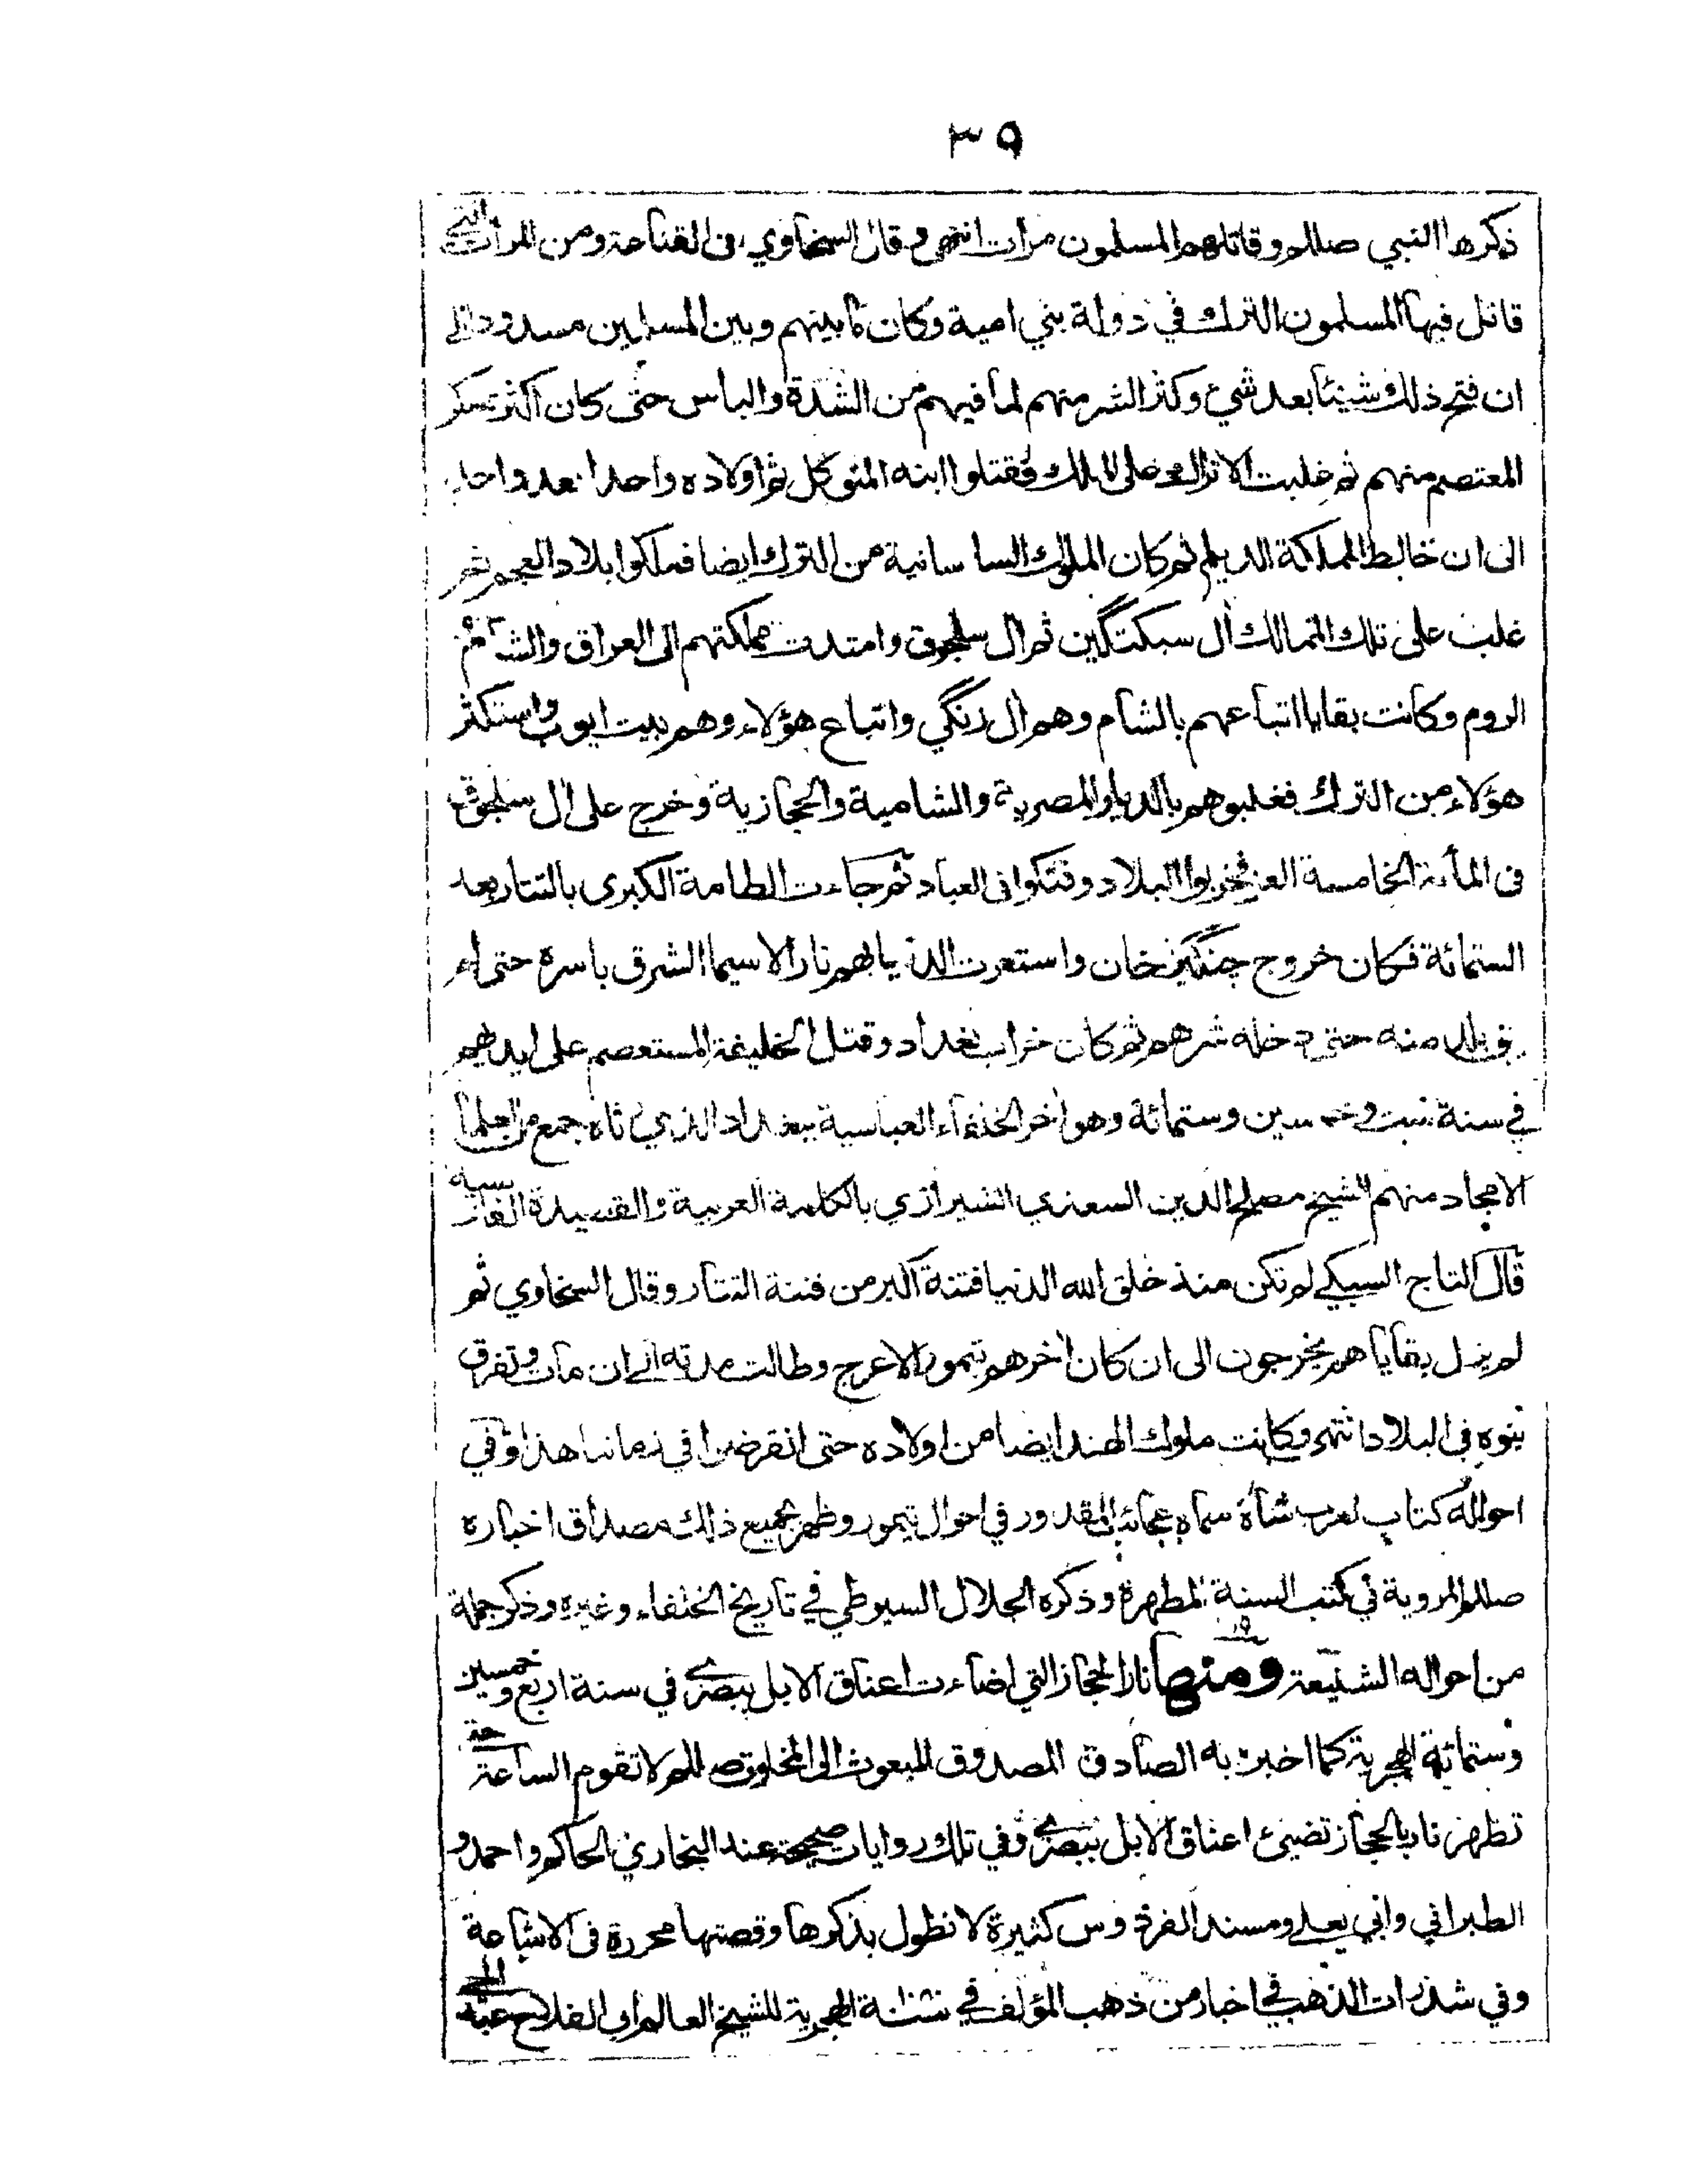 ٣٩
ذكرها النبي صللم وقاتلهم المسلمون مرات انتهى وقال السخاوي في القناعة ومن المرات التي
قاتل فيها المسلمون الترك في دولة بني امية وكان ما بينهم وبين المسلمين مسدودا الى
ان فتح ذلك شيئا بعد شيء وكثر الشر منهم لما فيهم من الشدة والباس حتى كان اكثر عسكر
المعتصم منهم ثم غلبت الاتراك على الملك فقتلوا ابنه المتوكل ثم اولاده واحدا بعد واحد
الى ان خالط المملكة الديلم ثم كان الملوك السا سانية من الترك ايضا فملكوا بلاد العجم ثم
غلب على تلك الممالك آل سبكتگين ثم آل سلجوق وامتدت مملكتهم الى العراق والشام ثم
الروم وكانت بقايا اتباعهم بالشام وهم آل زنگي واتباع هؤلاء وهم بيت ايوب واستكثر
هؤلاء من الترك فغلبوهم بالديار المصرية والشامية والحجازية وخرج على آل سلجوق
في المأية الخامسة الغز فخربوا البلاد وفتكوا في العباد ثم جاءت الطامة الكبرى بالتتار بعد
الستمائة فكان خروج جنگيز خان واستعرت الدنيا بهم نارا لا سيما الشرق باسره حتى لم
يبق بلد منه حتى دخله شرهم ثم كان خراب بغداد وقتل الخليفة المستعصم على ايديهم
في سنة ست وخمسين وستمائة وهو آخر الخلفاء العباسية ببغداد الذي رثاه جمع من العلماء
الامجاد منهم الشيخ مصلح الدين السعدي الشيرازي بالكلمة العربية والقصيدة الفارسية
قال التاج السبكي لم تكن منذ خلق الله الدنيا فتنة اكبر من فتنة التتار وقال السخاوي ثم
لم يزل بقايا هم يخرجون الى ان كان آخرهم تيمور الاعرج وطالت مدته الى ان مات وتفرق
بنوه في البلاد انتهى وكانت ملوك الهند ايضا من اولاده حتى انقرضوا في زماننا هذا وفي
احواله كتاب لعرب شاه سماه عجائب المقدور في احوال تيمور وظهر بجميع ذلك مصداق اخباره
صللم المروية في كتب السنة المطهرة وذكره الجلال السيوطي في تاريخ الخلفاء وغيره وذكر جملة
من احواله الشنيعة ومنها نار الحجاز التي اضاءت اعناق الابل ببصرى في سنة اربع وخمسين
وستمائة الهجرية كما اخبر به الصادق المصدوق المبعوث الى المخلوق صللم لا تقوم الساعة حتى
تظهر نار بالحجاز تضيئ اعناق الابل ببصرى وفي تلك روايات صحيحة عند البخاري والحاكم واحمد و
الطبراني وابي يعلى ومسند الفردوس كثيرة لا نطول بذكرها وقصتها محررة في الاشاعة
وفي شذرات الذهب في اخبار من ذهب المؤلف في سنة الهجرية للشيخ العالم ابي الفلاح عبد الحي